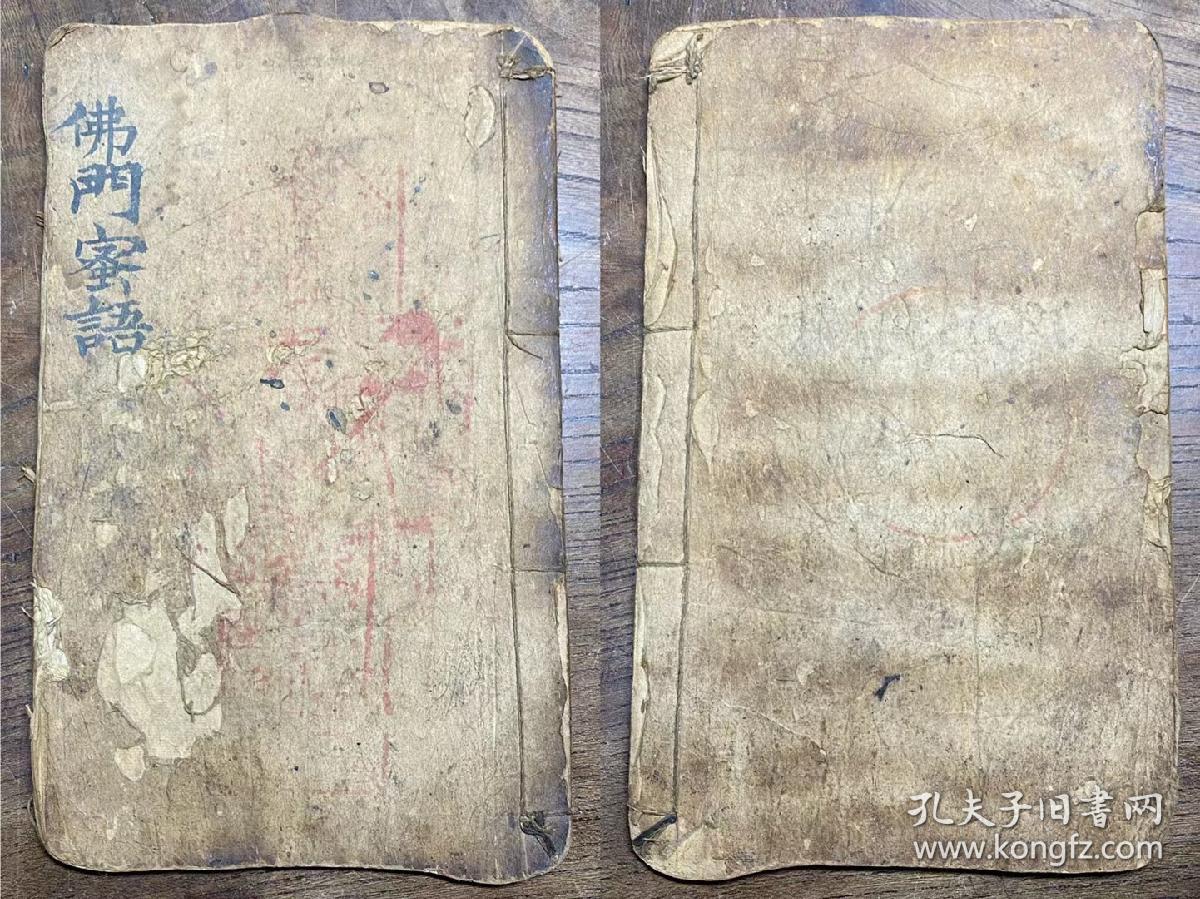 佛門蜜語
孔夫子旧書网
www.kongfz.com